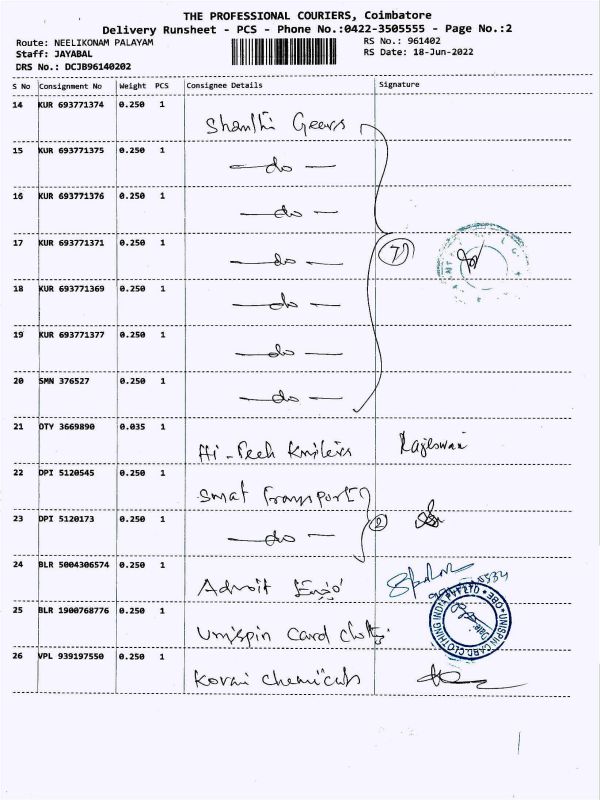 THE PROFESSIONAL COURIERS, Coimbatore
Delivery Runsheet - PCS - Phone No.:0422-3505555 - Page No.:2
Route: NEELIKONAM PALAYAM
RS No.: 961402
Staff: JAYABAL
RS Date: 18-Jun-2022
DRS No.: DCJB96140202
S No Consignment No Weight PCS Consignee Details Signature
14 KUR 693771374 0.250 1 Shanthi Gears
15 KUR 693771375 0.250 1 — do —
16 KUR 693771376 0.250 1 — do —
17 KUR 693771371 0.250 1 — do — 7
18 KUR 693771369 0.250 1 — do —
19 KUR 693771377 0.250 1 — do —
20 SMN 376527 0.250 1 — do —
21 DTY 3669890 0.035 1 Hi-Tech Rajeswari
22 DPI 5120545 0.250 1 Smat Transport
23 DPI 5120173 0.250 1 — do — 2
24 BLR 5004306574 0.250 1 Adroit
25 BLR 1900768776 0.250 1 Unispin Card
UNISPIN CARD CLOTHING INDIA PVT LTD
26 VPL 939197550 0.250 1 Kovai Chemicals